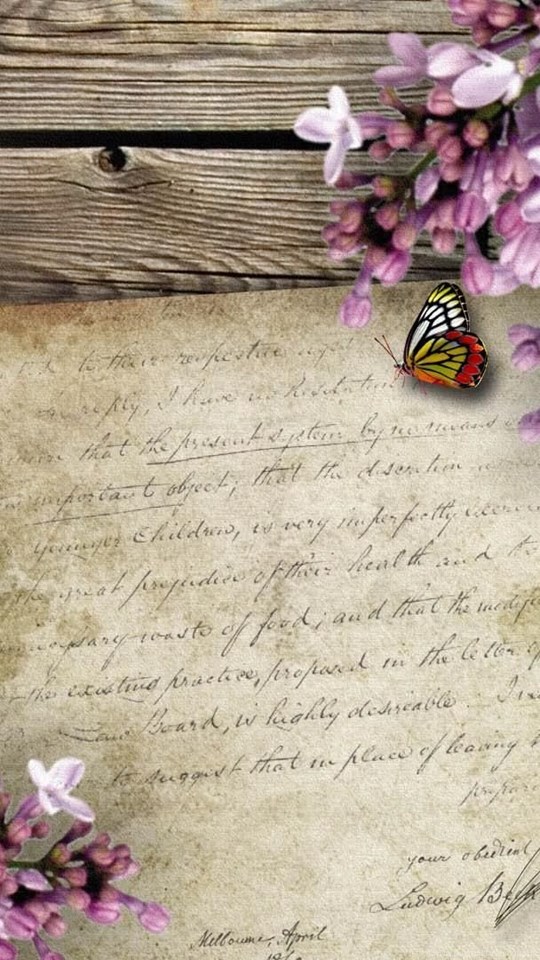 to their respective
reply, I have no hesitation
that the present system by no means
important object; that the discretion
younger Children, is very imperfectly
the great prejudice of their health and
waste of food; and that the
the existing practice, proposed in the letter of
Law Board, is highly desireable. I
to suggest that in place of leaving
your obedient
Ludwig
Melbourne, April